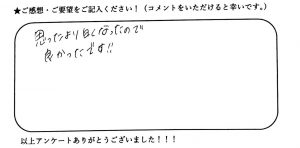 ★ご感想・ご要望をご記入ください！（コメントをいただけると幸いです。）
思ったより白くなったので
良かったです!!
以上アンケートありがとうございました！！！